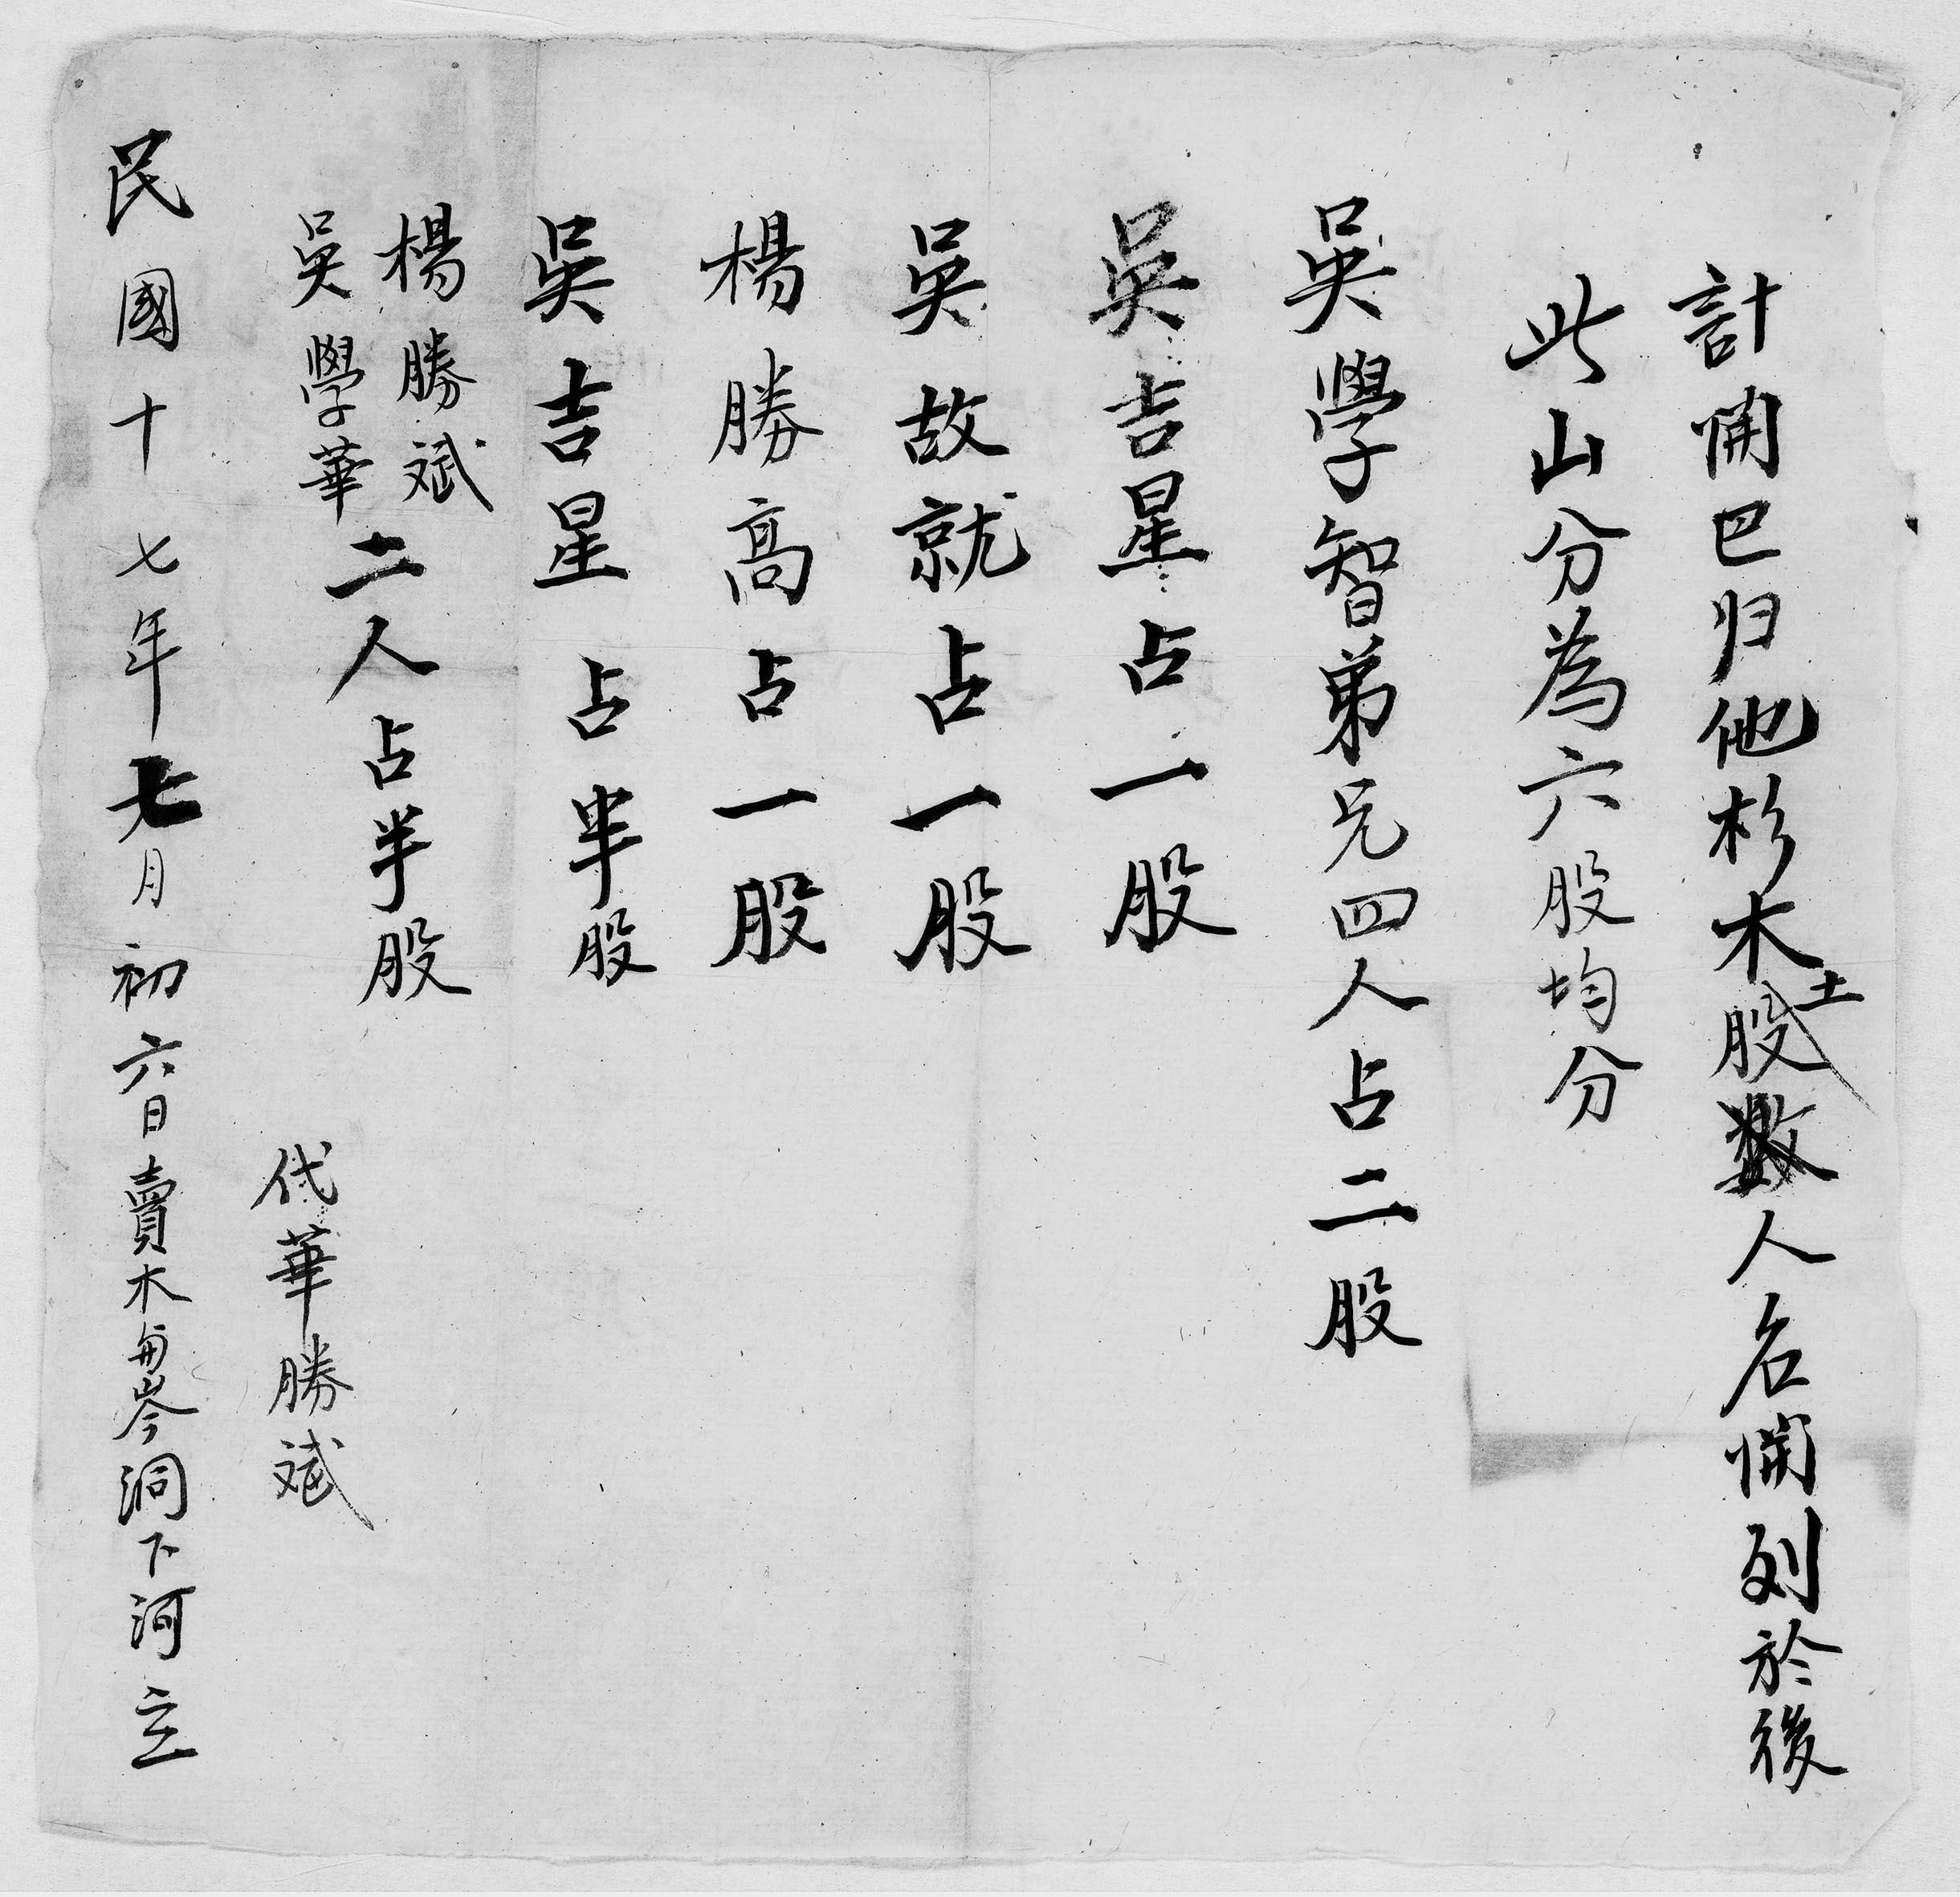 計開巴归他杉木土股数人名開列於後
此山分為六股均分
吳學智弟兄四人占二股
吳吉星占一股
吳故就占一股
楊勝高占一股
吳吉星占半股
楊勝斌
吳學華
二人占半股
代華勝斌
民國十七年七月初六日賣木與岑洞下河立